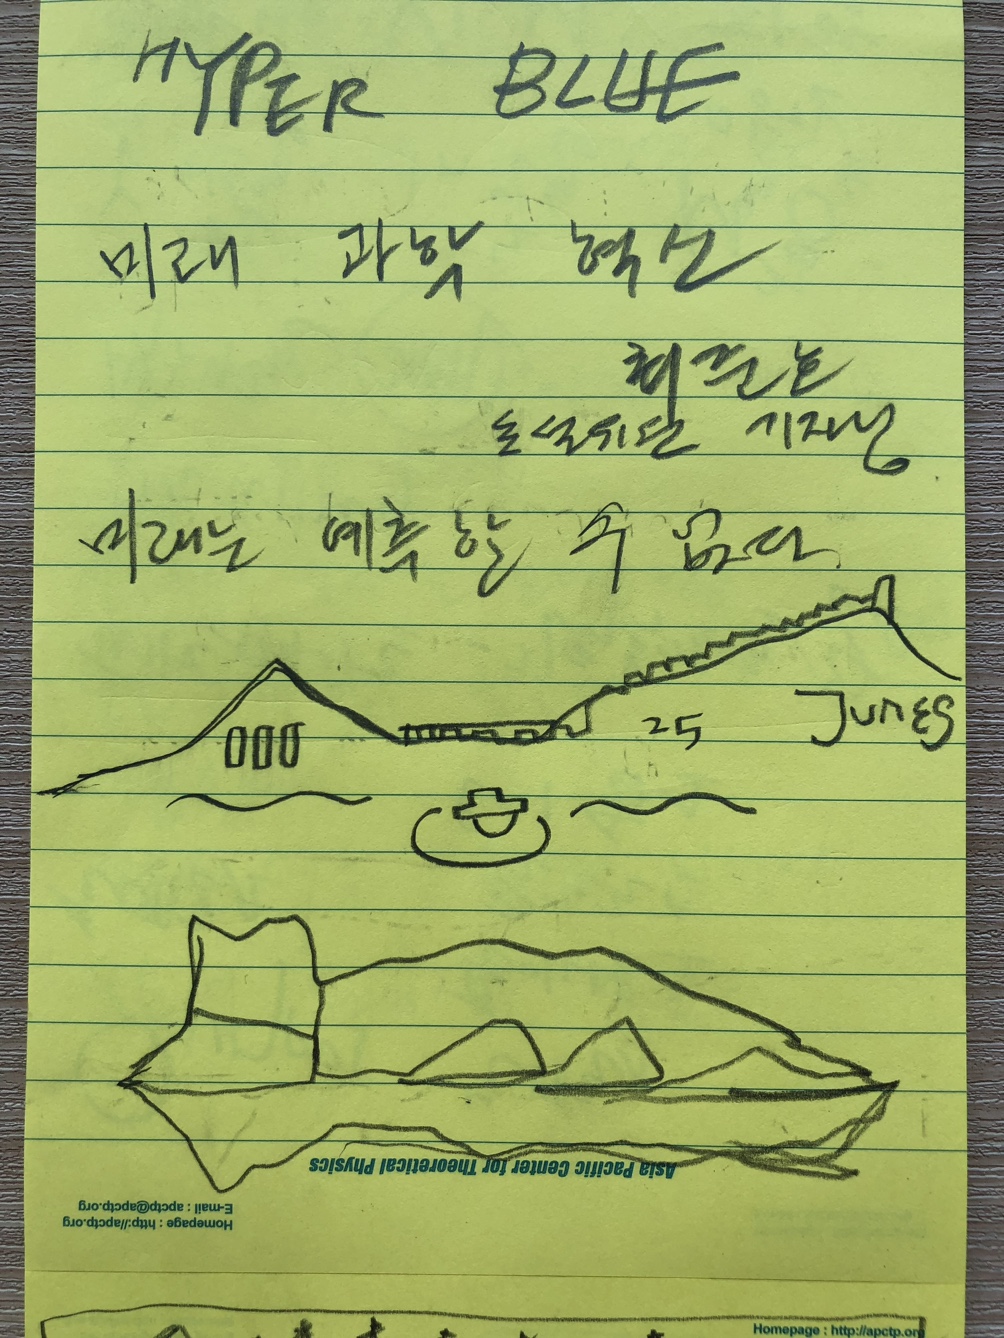 HYPER BLUE
미래 과학 혁신
최준호
논설위원 기자님
미래는 예측할 수 없다.
25 Junes
Asia Pacific Center for Theoretical Physics
Homepage : http://apctp.org
E-mail : apctp@apctp.org
Homepage : http://apctp.org